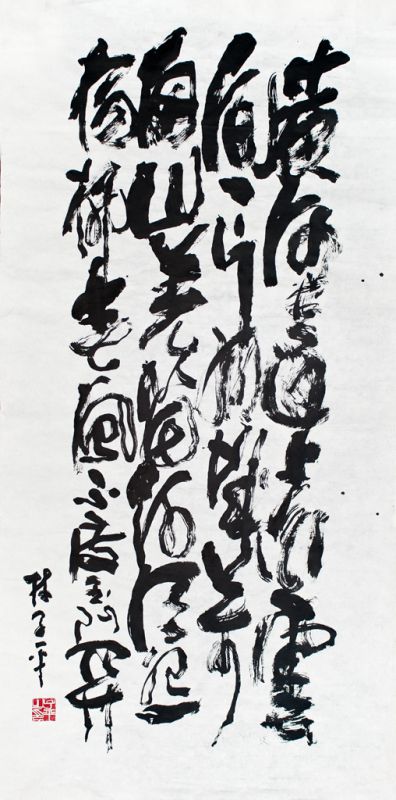 黄河遠上白雲
間一片孤城萬
仞山羌笛何須怨
楊柳春風不度玉門関